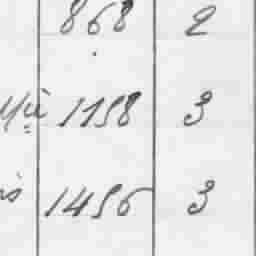 868 2
1158 3
1456 3